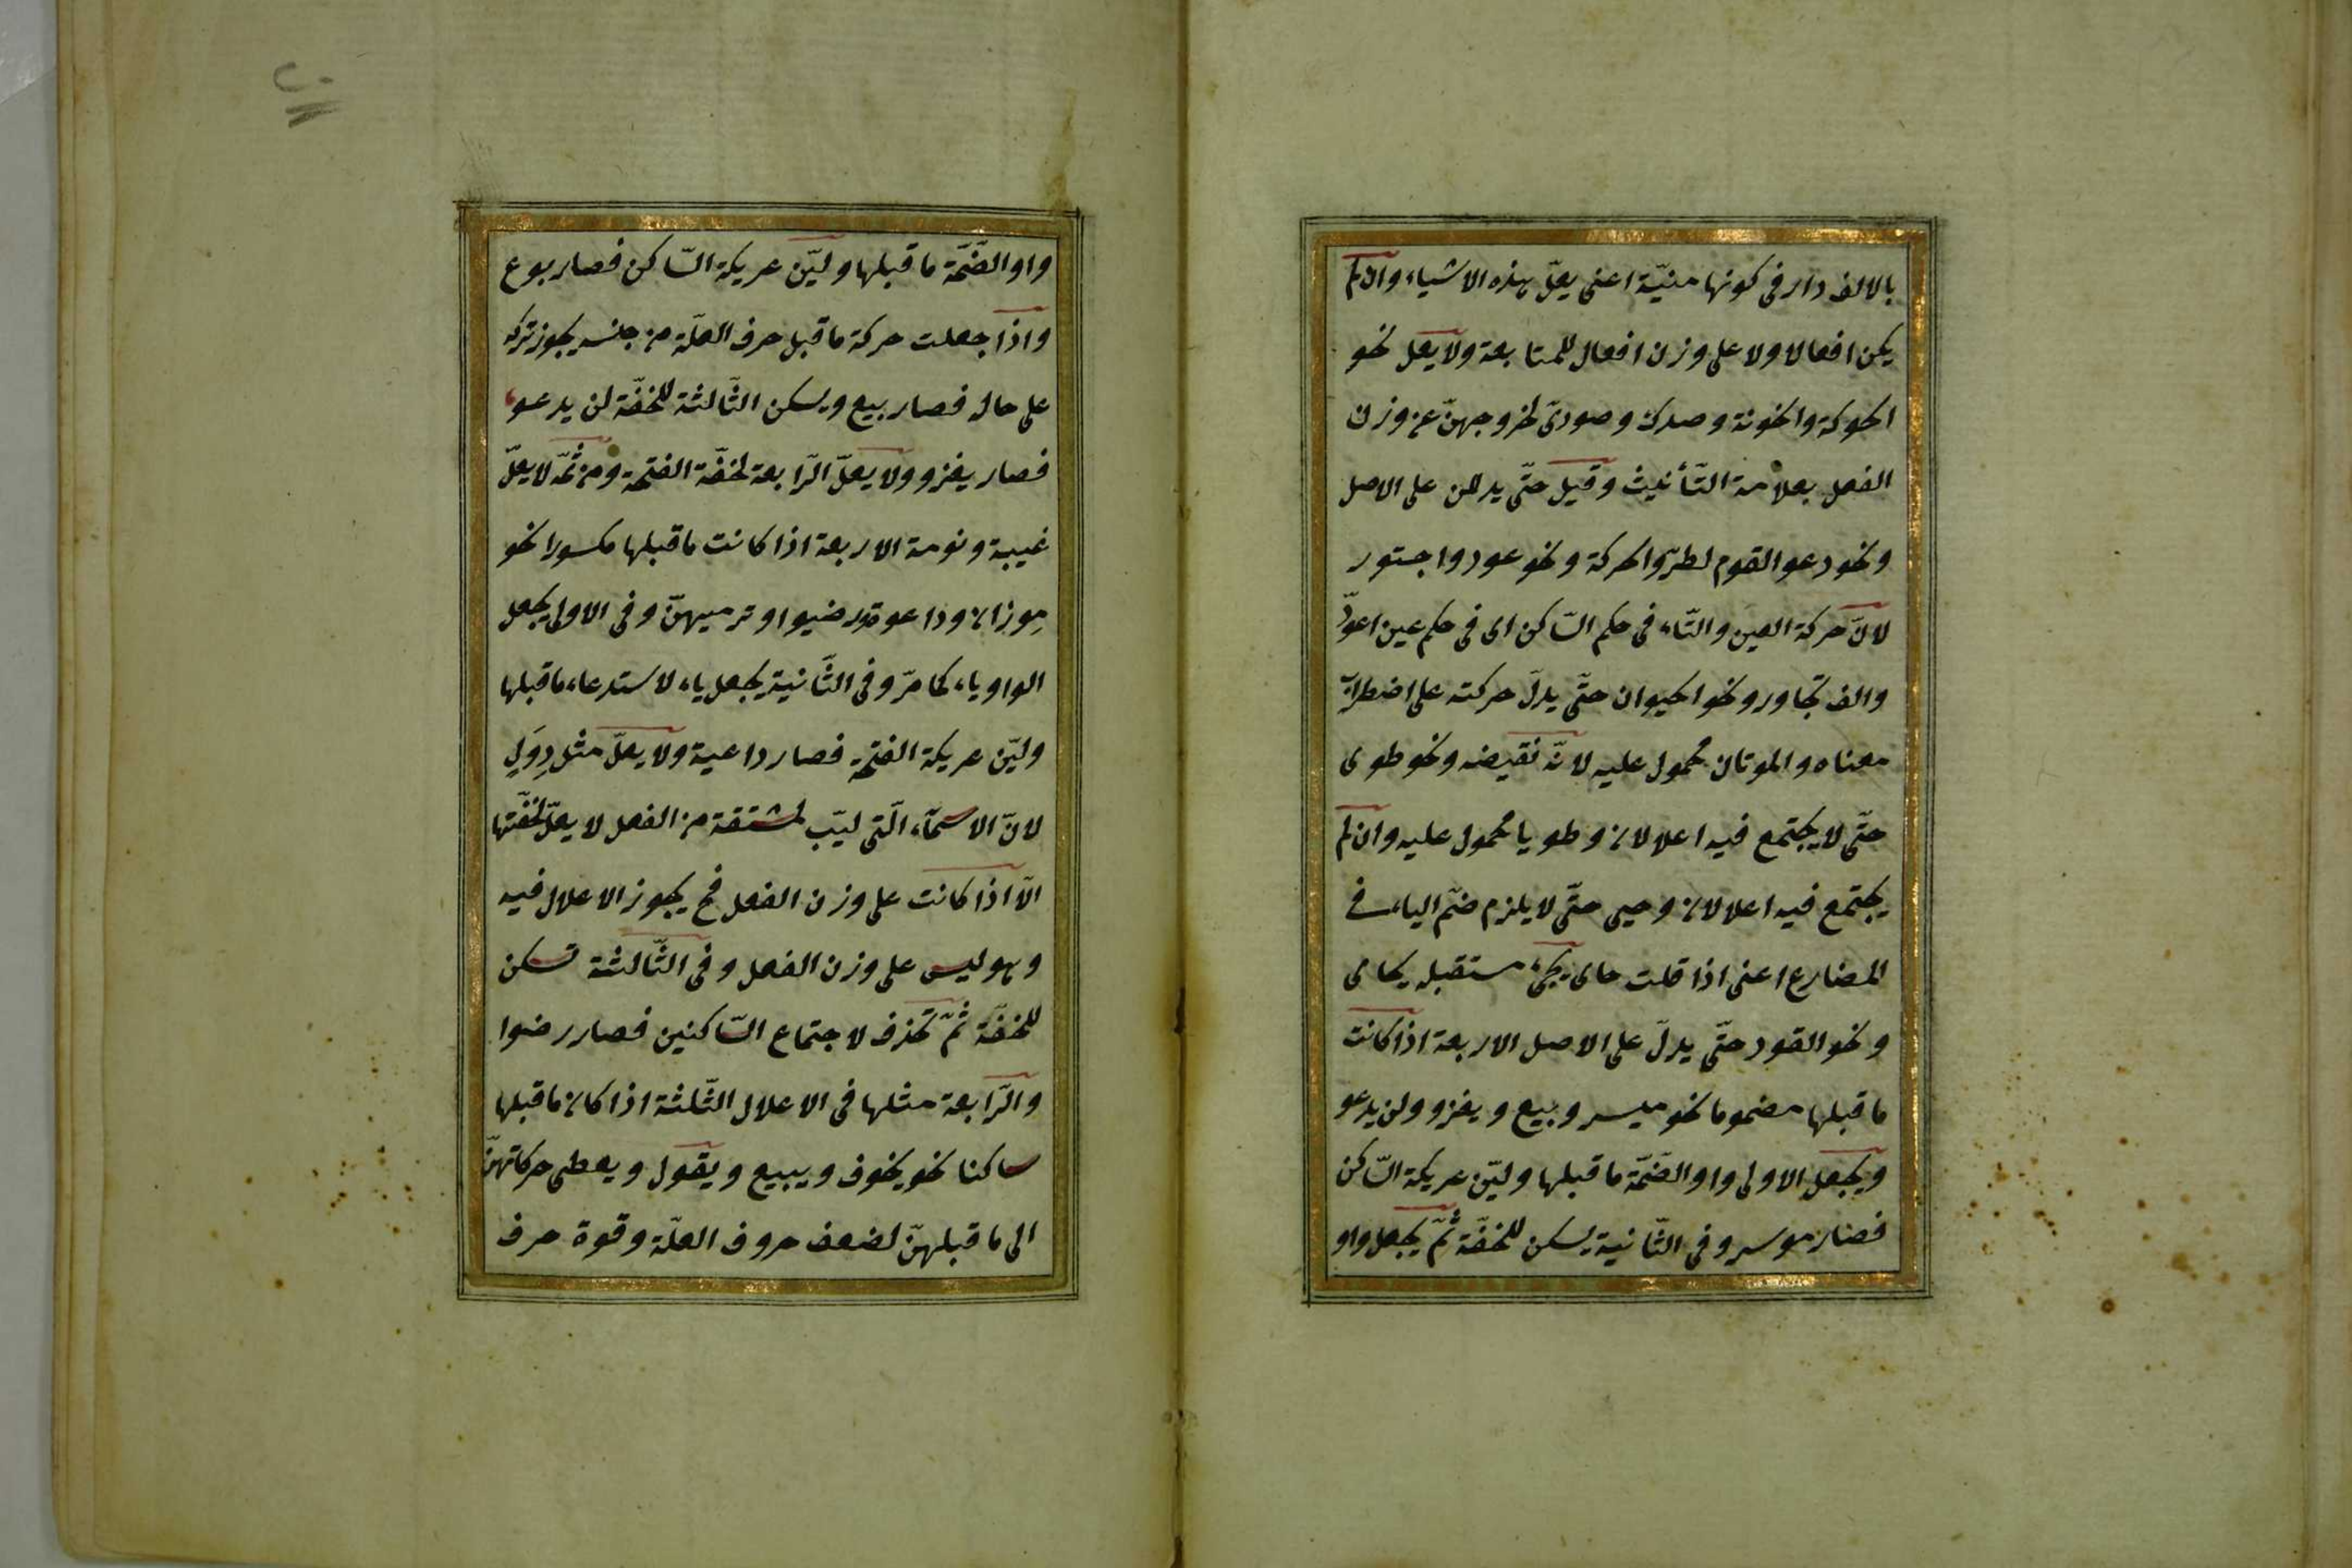 بالالف دار فى كونها منيّة اعنى يعلّ بهذه الاشياء وان لم
يكن افعالا ولا على وزن افعال للمتابعة ولا يعل نحو
الحوكة والخونة وصدك وصورىّ لخروجهنّ عن وزن
الفعل بعلامة التّأنيث وقيل حتّى يدللن على الاصل
ونحو دعوا القوم لطرّو الحركة ونحو عور واجتور
لانّ حركة العين والتّاء فى حكم السّاكن اى فى حكم عين اعورّ
والف تجاور ونحو الحيوان حتّى يدلّ حركته على اضطراب
معناه والموتان محمول عليه لانّه نقيضه ونحو طوى
حتّى لا يجتمع فيه اعلالان وطويا محمول عليه وان لم
يجتمع فيه اعلالان وحيى حتّى لا يلزم ضمّ الياء فى
المضارع اعنى اذا قلت حاى يجئ مستقبله يحاى
ونحو القود حتّى يدلّ على الاصل الاربعة اذا كانت
ما قبلها مضموما نحو ميسر وبيع ويغزو ولن يدعو
ويجعل الاولى واو الضّمّة ما قبلها وليّن عريكة السّاكن
فصار موسر وفى الثّانية يسكن للخفّة ثمّ يجعل واو
واو الضّمّة ما قبلها وليّن عريكة السّاكن فصار بوع
واذا جعلت حركة ما قبل حرف العلّة من جنسه يجوز تركه
على حاله فصار بيع ويسكن الثّالثة للخفّة لن يدعو
فصار يغزو ولا يعلّ الرّابعة لخفّة الفتحة ومن ثمّه لا يعلّ
غيبة ونومة الاربعة اذا كانت ما قبلها مكسورا نحو
مِوزان وداعوة ورضيوا وترميهنّ وفى الاولى يجعل
الواو ياء كما مرّ وفى الثّانية يجعل ياء لاستدعاء ما قبلها
وليّن عريكة الفتحة فصار داعية ولا يعلّ مثل دِوَلٍ
لانّ الاسمآء الّتى ليّب لمشتقة من الفعل لا يعلّ لخفّتها
الّا اذا كانت على وزن الفعل فح يجوز الاعلال فيه
وهو ليس على وزن الفعل وفى الثّالثة تسكن
للخفّة ثمّ تحذف لاجتماع السّاكنين فصار رضوا
والرّابعة مثلها فى الاعلال الثّلثة اذا كان ما قبلها
ساكنا نحو يخوف ويبيع ويقول ويعطى حركاتهنّ
الى ما قبلهنّ لضعف حروف العلّة وقوة حرف